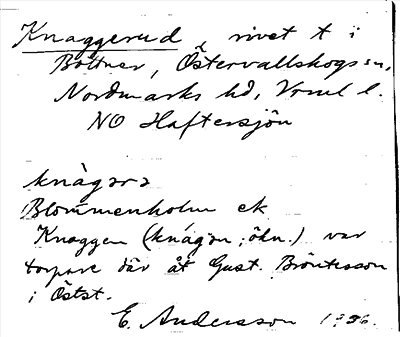 Knaggerud, rivet t i
Bottnar, Östervallskogs sn,
Nordmarks hd, Vrml l.
NO Haftersjön
knàgərə
Blommenholm ek
Knaggen (knágən; ökn.) var
torpare där åt Gust. Bröntesson
i Östst.
E. Andersson 1936.